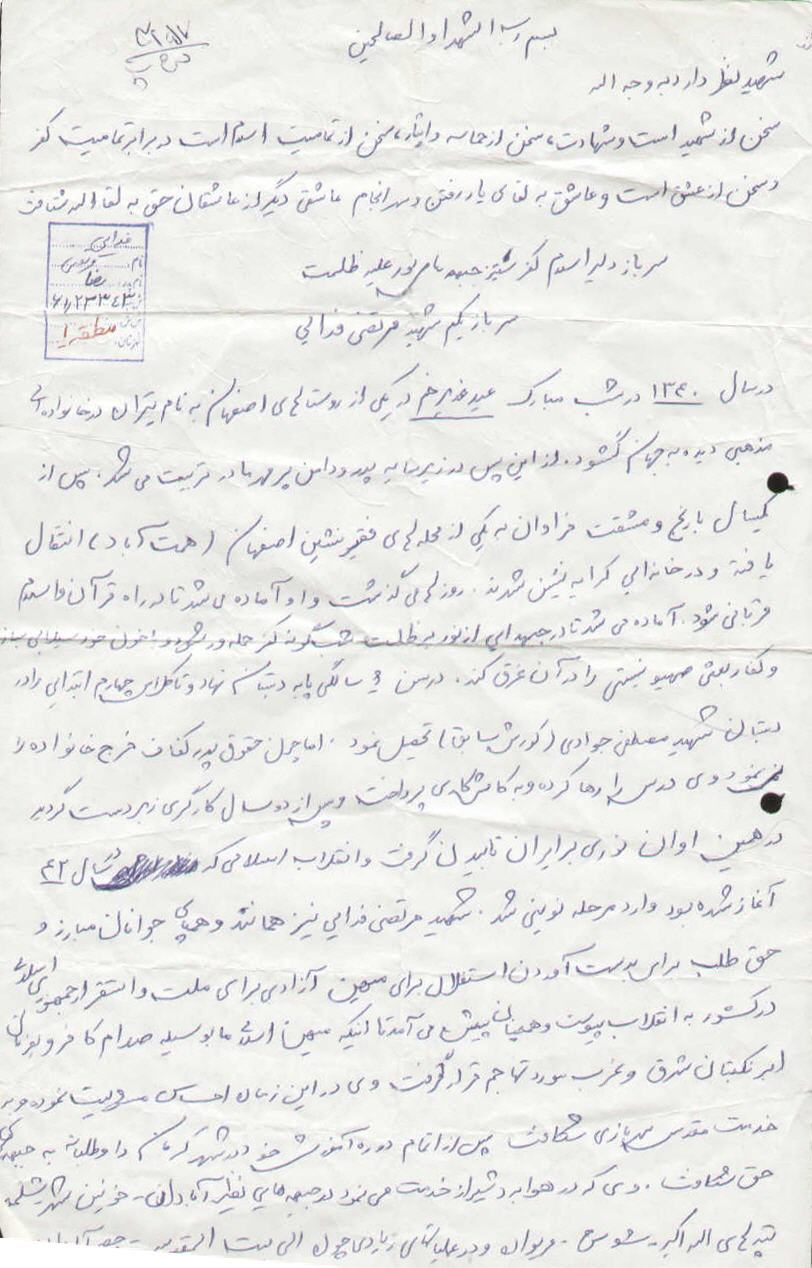 بسم رب الشهدا و الصالحین
شهید نظر دارد به وجه اله
سخن از شهید است و شهادت، سخن از حماسه و ایثار، سخن از تمامیت اسلام است در برابر تمامیت کفر
و سخن از عشق است و عاشق به لقای یار رفتن و سرانجام عاشقی دیگر از عاشقان حق به لقا اله شتافت
سرباز دلیر اسلام کفر ستیز جبهه های نور علیه ظلمت
سرباز یکم شهید مرتضی فدائی
فدایی
نام: مرتضی
نام پدر: رضا
۶۱۲۳۳۴۳
منطقه ۱
در سال ۱۳۴۰ در شب مبارک عید غدیر خم در یکی از روستاهای اصفهان به نام تیران در خانواده ای
مذهبی دیده به جهان گشود. از این پس در زیر سایه پدر و دامن پر مهر مادر تربیت می شد. پس از
یکسال با رنج و مشقت فراوان به یکی از محله های فقیر نشین اصفهان (همت آباد) انتقال
یافته و در خانه ایی کرایه نشین شدند. روزها می گذشت و او آماده می شد تا در راه قرآن و اسلام
قربانی شود. آماده می شد تا در جبهه ایی از نور بر ظلمت شب گونه کفر حمله ور شود و با خون خود سیلابی سازد
و کفار بعثی صهیونیستی را در آن غرق کند. در سن ۶ سالگی پا به دبستان نهاد و تا کلاس چهارم ابتدایی را در
دبستان شهید مصطفی جوادی (کورش سابق) تحصیل نمود. اما چون حقوق پدر کفاف خرج خانواده را
نمی نمود وی درس را رها کرده و به کاشیکاری پرداخت و پس از دو سال کارگری زبردست گردید
در همین اوان نوری بر ایران تابیدن گرفت و انقلاب اسلامی که در سال ۴۲
آغاز شده بود وارد مرحله نوینی شد. شهید مرتضی فدایی نیز همانند و همپای جوانان مبارز و
حق طلب برای بدست آوردن استقلال برای میهن آزادی برای ملت و استقرار جمهوری اسلامی
در کشور به انقلاب پیوست و همچنان پیش می آمد تا اینکه میهن اسلامی ما بوسیله صدام کافر و بفرمان
ابر نکبتان شرق و غرب مورد تهاجم قرار گرفت وی در این زمان احساس مسولیت نموده و به
خدمت مقدس سربازی شتافت پس از اتمام دوره آموزش خود در شهر کرمان داوطلبانه به جبهه های
حق شتافت. وی که در هوابرد شیراز خدمت می نمود در جبهه هایی نظیر آبادان - خونین شهر - شلمچه
تپه های اله اکبر - شوش - مریوان و در عملیاتهای زیادی چون الی بیت المقدس - حصر آبادان